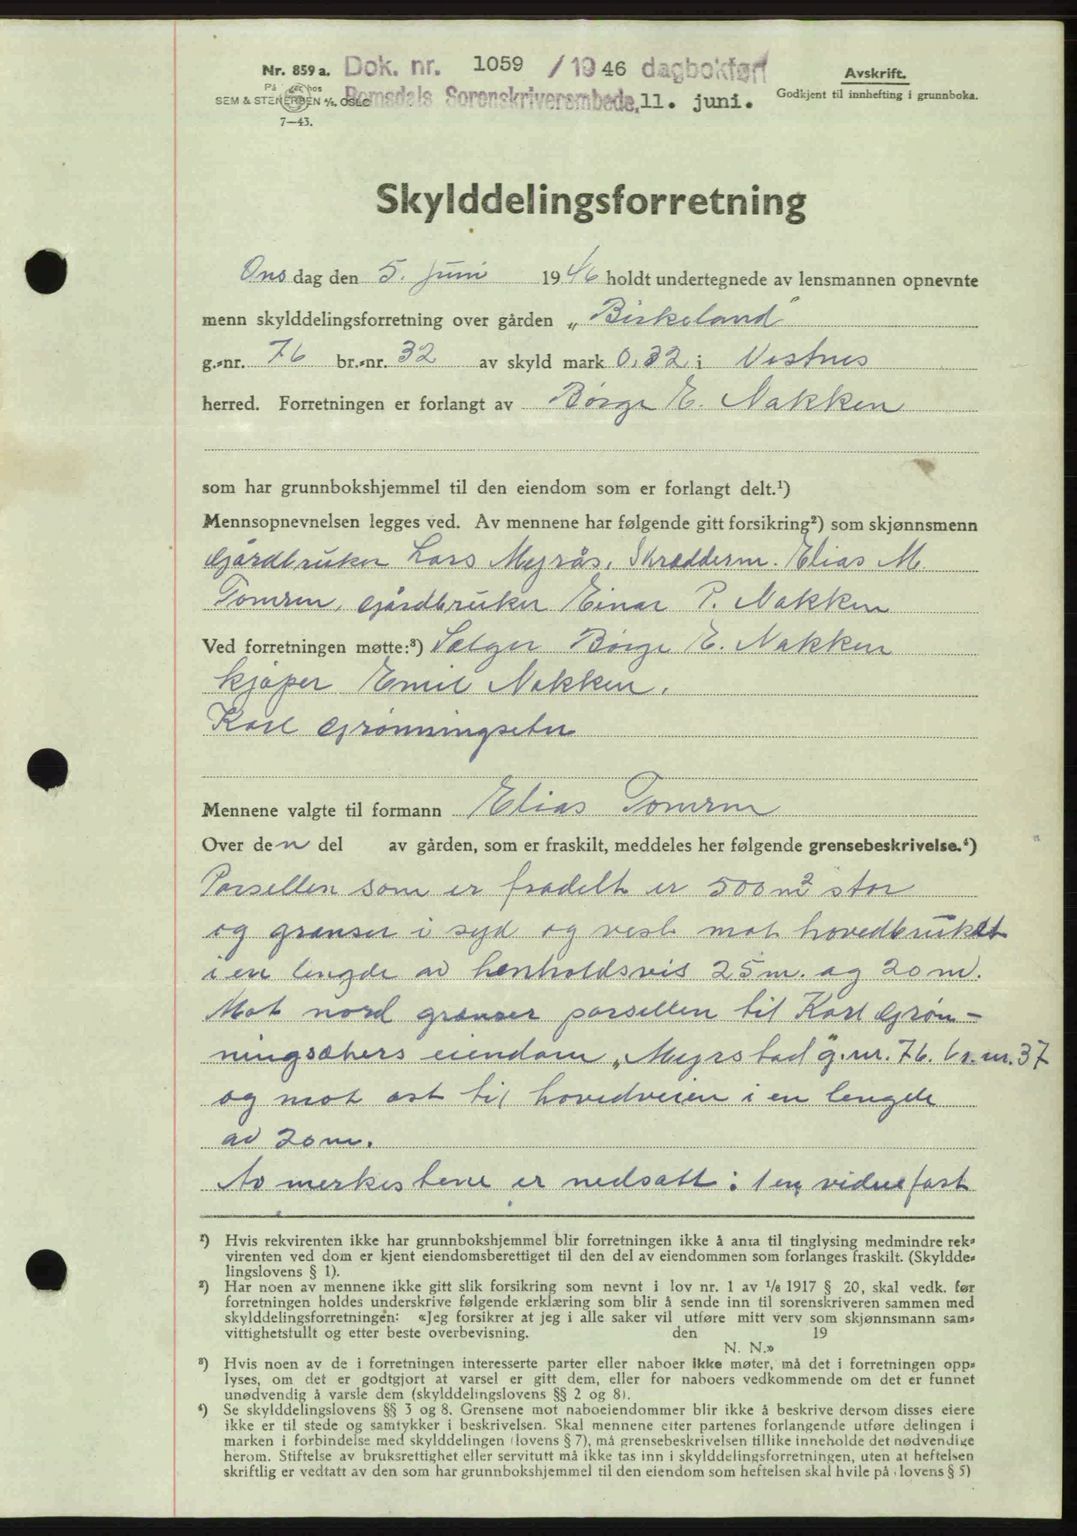 Nr. 859 a. Dok. nr. 1059 / 1946 dagbokført Avskrift.
På lager hos
SEM & STENERSEN A/S, OSLO Romsdals Sorenskriverembede, 11. juni. Godkjent til innhefting i grunnboka.
7—43.
Skylddelingsforretning
Onsdag den 5. juni 1946 holdt undertegnede av lensmannen opnevnte
menn skylddelingsforretning over gården „Birkeland"
g.-nr. 76 br.-nr. 32 av skyld mark 0,32 i Vestnes
herred. Forretningen er forlangt av Børge E. Nakken
som har grunnbokshjemmel til den eiendom som er forlangt delt.¹)
Mennsopnevnelsen legges ved. Av mennene har følgende gitt forsikring²) som skjønnsmenn
Gårdbruker Lars Myrås, Skrædderm. Elias M.
Tomren, Gårdbruker Einar P. Nakken
Ved forretningen møtte:³) Selger Børge E. Nakken
kjøper Emil Nakken.
Karl Grønningseter
Mennene valgte til formann Elias Tomren
Over den del av gården, som er fraskilt, meddeles her følgende grensebeskrivelse.⁴)
Parsellen som er fradelt er 500 m² stor
og grenser i syd og vest mot hovedbruket
i en lengde av henholdsvis 25 m. og 20 m.
Mot nord grenser parsellen til Karl Grøn-
ningsæters eiendom „Myrstad" g.nr. 76. br.nr. 37
og mot øst til hovedveien i en lengde
av 20 m.
Av merkestene er nedsatt: 1 en vidne fast
¹) Hvis rekvirenten ikke har grunnbokshjemmel blir forretningen ikke å anta til tinglysing medmindre rek-
virenten ved dom er kjent eiendomsberettiget til den del av eiendommen som forlanges fraskilt. (Skyldde-
lingslovens § 1).
²) Har noen av mennene ikke gitt slik forsikring som nevnt i lov nr. 1 av 1/6 1917 § 20, skal vedk. før
forretningen holdes underskrive følgende erklæring som blir å sende inn til sorenskriveren sammen med
skylddelingsforretningen: «Jeg forsikrer at jeg i alle saker vil utføre mitt verv som skjønnsmann sam-
vittighetsfullt og etter beste overbevisning. den 19
N. N.»
³) Hvis noen av de i forretningen interesserte parter eller naboer ikke møter, må det i forretningen opp-
lyses, om det er godtgjort at varsel er gitt dem, eller for naboers vedkommende om det er funnet
unødvendig å varsle dem (skylddelingslovens §§ 2 og 8).
⁴) Se skylddelingslovens §§ 3 og 8. Grensene mot naboeiendommer blir ikke å beskrive dersom disses eiere
ikke er til stede og samtykker i beskrivelsen. Skal mennene etter partenes forlangende utføre delingen i
marken i forbindelse med skylddelingen (lovens § 7), må grensebeskrivelsen tillike inneholde det nødvendige
herom. Stiftelse av bruksrettighet eller servitutt må ikke tas inn i skylddelingsforretningen, uten at heftelsen
skriftlig er vedtatt av den som har grunnbokshjemmel til den eiendom som heftelsen skal hvile på (lovens § 5)